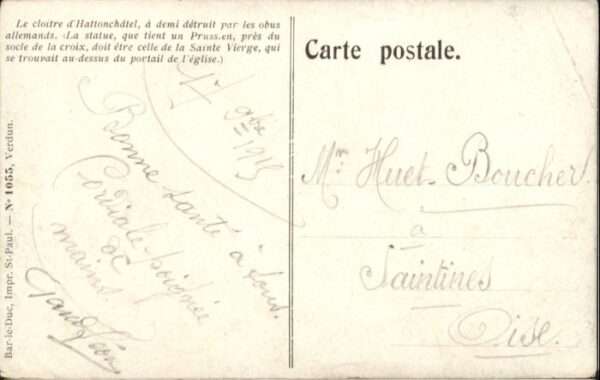 Le cloître d'Hattonchâtel, à demi détruit par les obus
allemands. (La statue, que tient un Prussien, près du
socle de la croix, doit être celle de la Sainte Vierge, qui
se trouvait au-dessus du portail de l'église.)
Bar-le-Duc, Impr. St-Paul. — N° 1055, Verdun.
9bre
1915
Bonne santé à tous.
Cordiale poignée
de
mains
Carte postale.
Mr Huet-Boucher
à
Saintines
Oise.